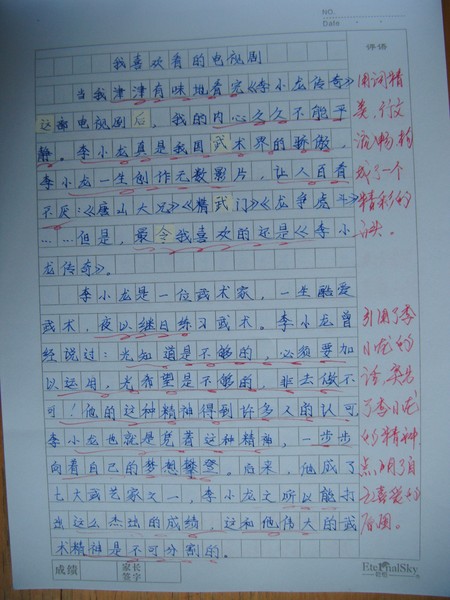 NO.
Date
评语
我喜欢看的电视剧
当我津津有味地看完《李小龙传奇》
这部电视剧后，我的内心久久不能平
静。李小龙真是我国武术界的骄傲，
李小龙一生创作无数影片，让人百看
不厌：《唐山大兄》《精武门》《龙争虎斗》
……但是，最令我喜欢的还是《李小
龙传奇》。
李小龙是一位武术家，一生酷爱
武术，夜以继日练习武术。李小龙曾
经说过：光知道是不够的，必须要加
以运用，光希望是不够的，非去做不
可！他的这种精神得到许多人的认可，
李小龙也就是凭着这种精神，一步步
向着自己的梦想攀登。后来，他成了
七大武艺家之一，李小龙之所以能打
出这么杰出的成绩，这和他伟大的武
术精神是不可分割的。
用词精
美，行文
流畅，构
成了一个
精彩的
开头。
引用了李
小龙的
话，突出
了李小龙
的精神，
点明了自
己喜爱的
原因。
成绩
家长
签字
EternalSky